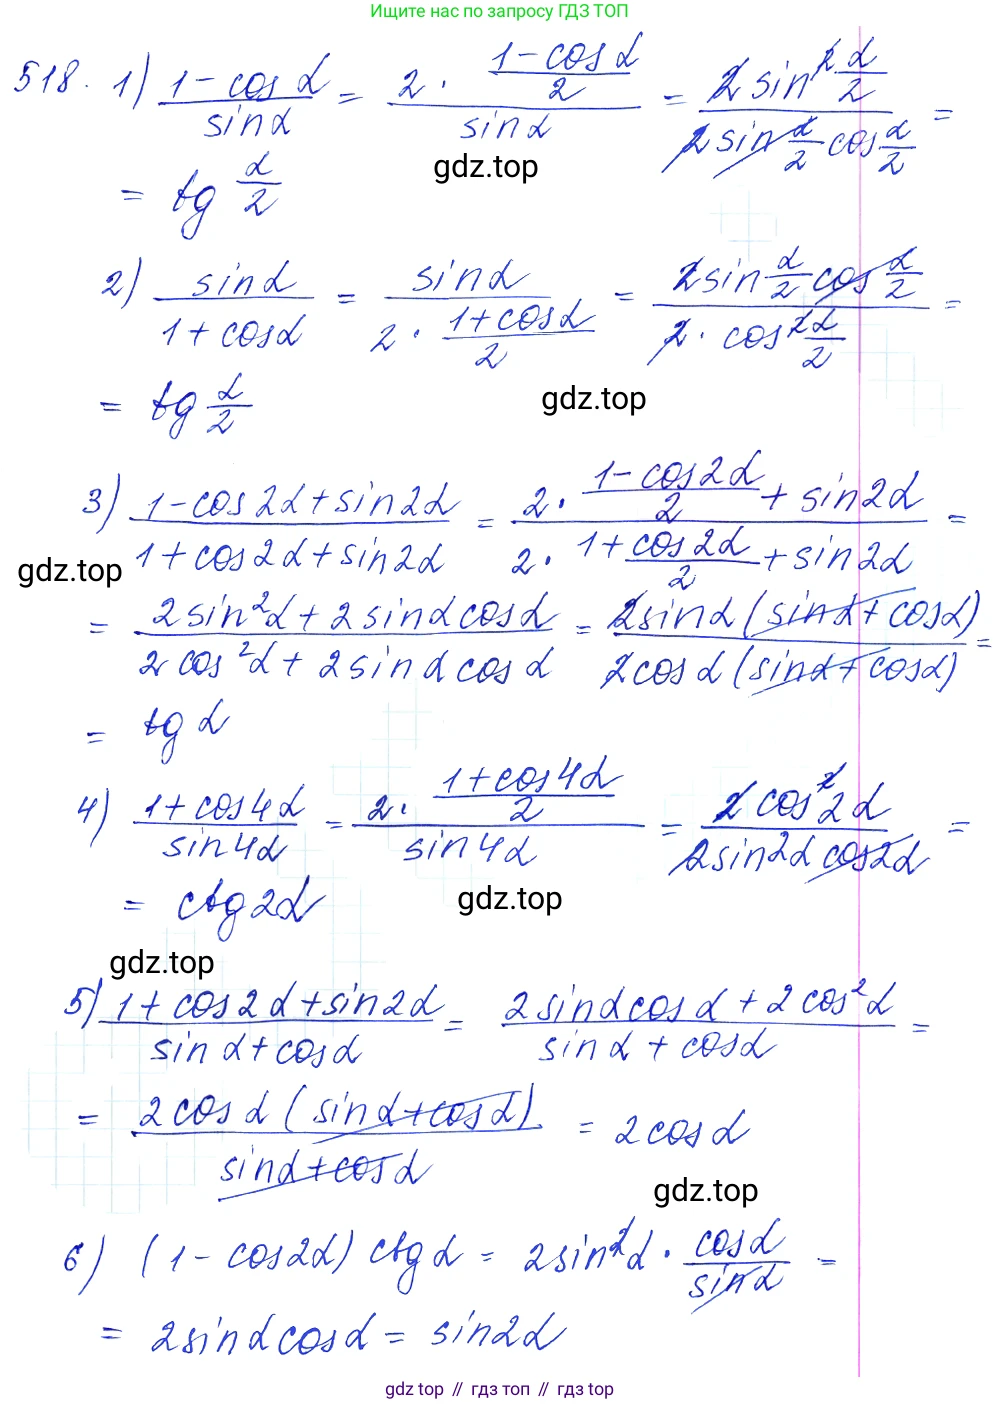 Ищите нас по запросу ГДЗ ТОП
518. 1) (1-cos α)/(sin α) = (2 · (1-cos α)/2)/(sin α) = (2 sin² α/2)/(2 sin α/2 cos α/2) =
gdz.top
= tg α/2
2) (sin α)/(1+cos α) = (sin α)/(2 · (1+cos α)/2) = (2 sin α/2 cos α/2)/(2 · cos² α/2) =
= tg α/2
gdz.top
3) (1-cos 2α + sin 2α)/(1+cos 2α + sin 2α) = (2 · (1-cos 2α)/2 + sin 2α)/(2 · (1+cos 2α)/2 + sin 2α) =
gdz.top
= (2 sin² α + 2 sin α cos α)/(2 cos² α + 2 sin α cos α) = (2 sin α (sin α + cos α))/(2 cos α (sin α + cos α)) =
= tg α
4) (1+cos 4α)/(sin 4α) = (2 · (1+cos 4α)/2)/(sin 4α) = (2 cos² 2α)/(2 sin 2α cos 2α) =
= ctg 2α
gdz.top
gdz.top
5) (1+cos 2α + sin 2α)/(sin α + cos α) = (2 sin α cos α + 2 cos² α)/(sin α + cos α) =
= (2 cos α (sin α + cos α))/(sin α + cos α) = 2 cos α
gdz.top
6) (1-cos 2α) ctg α = 2 sin² α · (cos α)/(sin α) =
= 2 sin α cos α = sin 2α
gdz top // гдз топ // гдз top